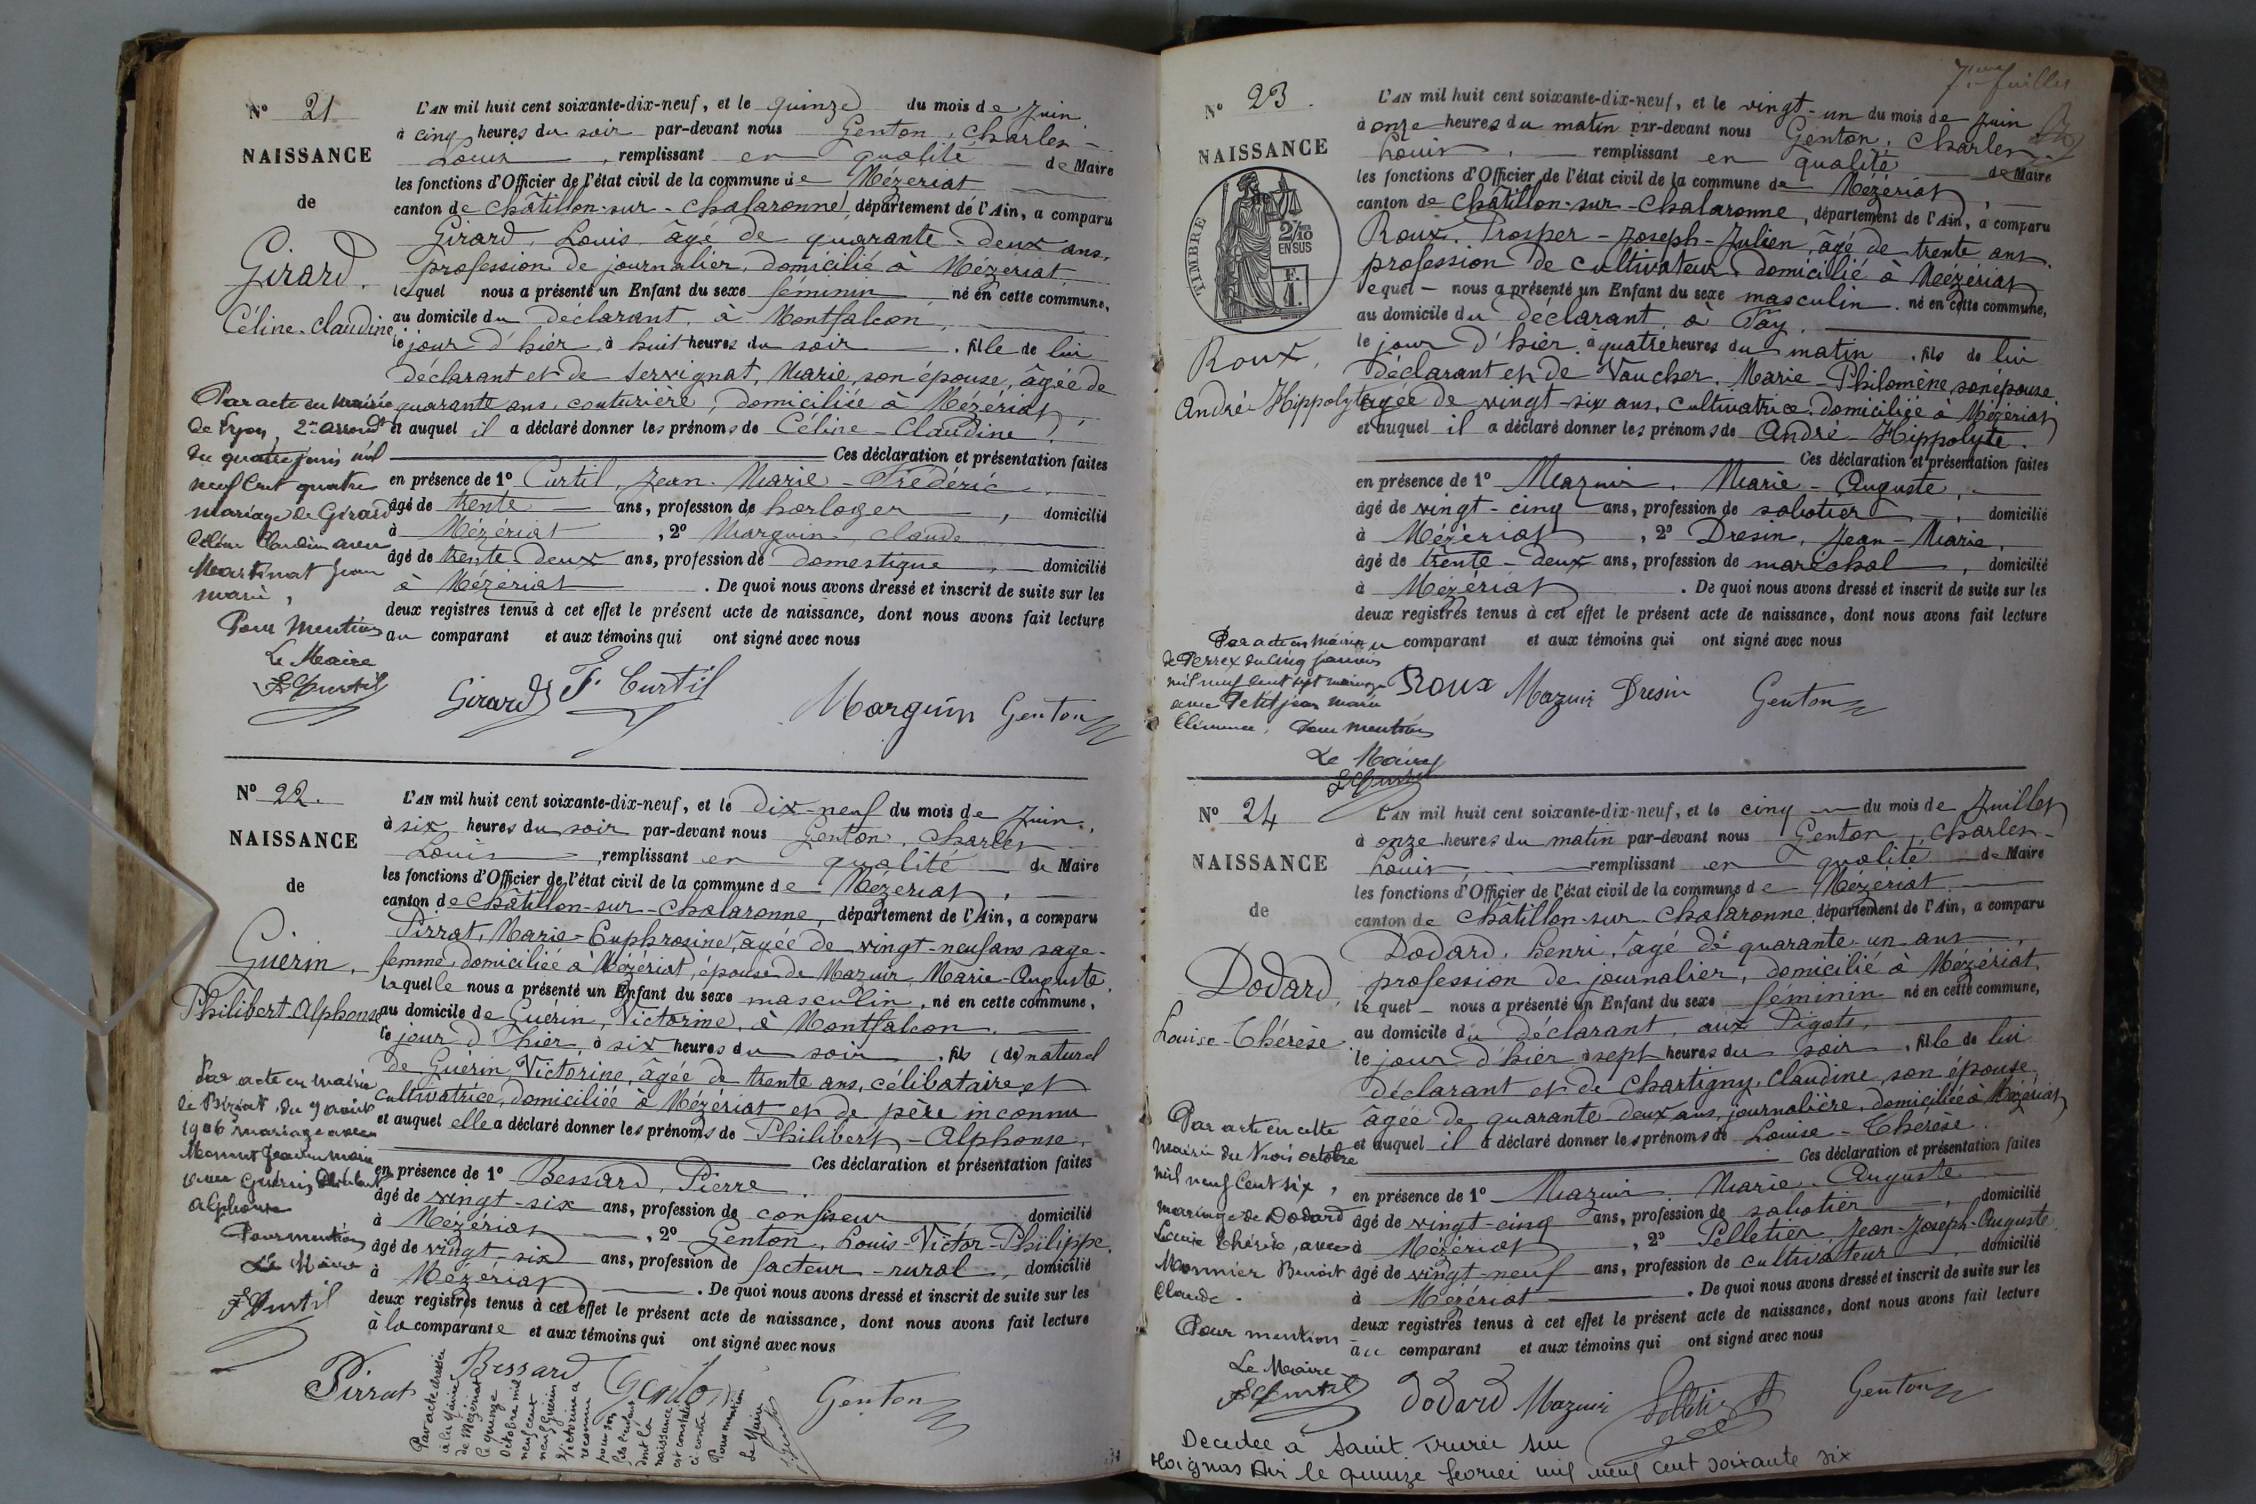 N° 21
NAISSANCE
de
Girard,
Céline-Claudine
L'AN mil huit cent soixante-dix-neuf, et le quinze du mois de Juin
à cinq heures du soir par-devant nous Genton, Charles-
Louis, remplissant en qualité de Maire
les fonctions d'Officier de l'état civil de la commune de Mézériat
canton de Châtillon-sur-Chalaronne, département de l'Ain, a comparu
Girard, Louis âgé de quarante-deux ans,
profession de journalier, domicilié à Mézériat
lequel nous a présenté un Enfant du sexe féminin né en cette commune,
au domicile du déclarant, à Montfalcon,
le jour d'hier, à huit heures du soir, fille de lui
déclarant et de Servignat, Marie, son épouse, âgée de
quarante ans, couturière, domiciliée à Mézériat
et auquel il a déclaré donner les prénoms de Céline-Claudine.
Ces déclaration et présentation faites
en présence de 1° Curtil, Jean-Marie-Frédéric,
âgé de trente ans, profession de horloger, domicilié
à Mézériat, 2° Marguin, Claude
âgé de trente deux ans, profession de domestique, domicilié
à Mézériat. De quoi nous avons dressé et inscrit de suite sur les
deux registres tenus à cet effet le présent acte de naissance, dont nous avons fait lecture
au comparant et aux témoins qui ont signé avec nous
Girard F. Curtil Marguin Genton
Par acte en mairie
de Lyon, 2me arrondt
du quatre juin mil
neuf cent quatre
mariage de Girard
Céline Claudine avec
Martinat Jean
Marie,
Pour Mention
Le Maire
F Curtil
N° 22.
NAISSANCE
de
Guérin,
Philibert-Alphonse
L'AN mil huit cent soixante-dix-neuf, et le dix-neuf du mois de Juin,
à six heures du soir par-devant nous Genton, Charles
Louis, remplissant en qualité de Maire
les fonctions d'Officier de l'état civil de la commune de Mézériat,
canton de Châtillon-sur-Chalaronne, département de l'Ain, a comparu
Pirrat, Marie-Euphrosine, âgée de vingt-neuf ans sage-
femme, domiciliée à Mézériat, épouse de Mazuir, Marie-Auguste,
laquelle nous a présenté un Enfant du sexe masculin, né en cette commune,
au domicile de Guérin, Victorine, à Montfalcon.
le jour d'hier, à six heures du soir, fils (de) naturel
de Guérin, Victorine, âgée de trente ans, célibataire et
cultivatrice, domiciliée à Mézériat et de père inconnu
et auquel elle a déclaré donner les prénoms de Philibert-Alphonse,
Ces déclaration et présentation faites
en présence de 1° Bessard, Pierre,
âgé de vingt-six ans, profession de confiseur domicilié
à Mézériat, 2° Genton, Louis-Victor-Philippe,
âgé de vingt six ans, profession de facteur-rural, domicilié
à Mézériat. De quoi nous avons dressé et inscrit de suite sur les
deux registres tenus à cet effet le présent acte de naissance, dont nous avons fait lecture
à la comparante et aux témoins qui ont signé avec nous
Pirrat Bessard Genton Genton
Par acte en mairie
de Biziat du 9 août
1906 mariage avec
Jeanne Marie
avec Guérin Philibert
Alphonse
Pour mention
Le Maire
F Curtil
Par acte dressé
à la Mairie
de Mézériat
le quinze
Octobre mil
neuf cent
neuf Guérin
Victorine a
reconnu
pour son
fils l'enfant
dont la
naissance
est constatée
ci contre
Pour mention
Le Maire
7me Juillet
N° 23.
NAISSANCE
TIMBRE
2/10
EN SUS
F.
1.
Roux,
André-Hippolyte
L'AN mil huit cent soixante-dix-neuf, et le vingt-un du mois de Juin
à onze heures du matin par-devant nous Genton, Charles-
Louis, remplissant en qualité de Maire
les fonctions d'Officier de l'état civil de la commune de Mézériat,
canton de Châtillon-sur-Chalaronne, département de l'Ain, a comparu
Roux, Prosper-Joseph-Julien, âgé de trente ans,
profession de cultivateur, domicilié à Mézériat
lequel nous a présenté un Enfant du sexe masculin. né en cette commune,
au domicile du déclarant à Fay.
le jour d'hier à quatre heures du matin, fils de lui
déclarant et de Vaucher, Marie-Philomène, son épouse,
âgée de vingt-six ans, cultivatrice, domiciliée à Mézériat
et auquel il a déclaré donner les prénoms de André-Hippolyte.
Ces déclaration et présentation faites
en présence de 1° Mazuir, Marie-Auguste,
âgé de vingt-cinq ans, profession de sabotier, domicilié
à Mézériat, 2° Dresin, Jean-Marie,
âgé de trente-deux ans, profession de maréchal, domicilié
à Mézériat. De quoi nous avons dressé et inscrit de suite sur les
deux registres tenus à cet effet le présent acte de naissance, dont nous avons fait lecture
au comparant et aux témoins qui ont signé avec nous
Roux Mazuir Dresin Genton
Par acte en Mairie
de Perrex du cinq janvier
mil neuf cent sept mariage
avec Petitjean Marie
Clémence. Pour mention
Le Maire
F Curtil
N° 24
NAISSANCE
de
Dodard,
Louise-Thérèse
L'AN mil huit cent soixante-dix-neuf, et le cinq du mois de Juillet
à onze heures du matin par-devant nous Genton, Charles-
Louis, remplissant en qualité de Maire
les fonctions d'Officier de l'état civil de la commune de Mézériat
canton de Châtillon-sur-Chalaronne, département de l'Ain, a comparu
Dodard, Henri, âgé de quarante-un ans,
profession de journalier, domicilié à Mézériat,
lequel nous a présenté un Enfant du sexe féminin né en cette commune,
au domicile du déclarant, aux Pigots,
le jour d'hier à sept heures du soir, fille de lui
déclarant et de Chartigny, Claudine, son épouse,
âgée de quarante-deux ans, journalière, domiciliée à Mézériat
et auquel il a déclaré donner les prénoms de Louise-Thérèse.
Ces déclaration et présentation faites
en présence de 1° Mazuir, Marie-Auguste
âgé de vingt-cinq ans, profession de sabotier, domicilié
à Mézériat, 2° Pelletier, Jean-Joseph-Auguste,
âgé de vingt-neuf ans, profession de cultivateur domicilié
à Mézériat. De quoi nous avons dressé et inscrit de suite sur les
deux registres tenus à cet effet le présent acte de naissance, dont nous avons fait lecture
au comparant et aux témoins qui ont signé avec nous
Dodard Mazuir Pelletier Genton
Par acte en cette
Mairie du trois octobre
mil neuf cent six,
mariage de Dodard
Louise Thérèse, avec
Monnier Benoit
Claude.
Pour mention
Le Maire
F Curtil
Decedee à Saint Trivier sur
Moignas Ain le quinze fevrier mil neuf cent soixante six